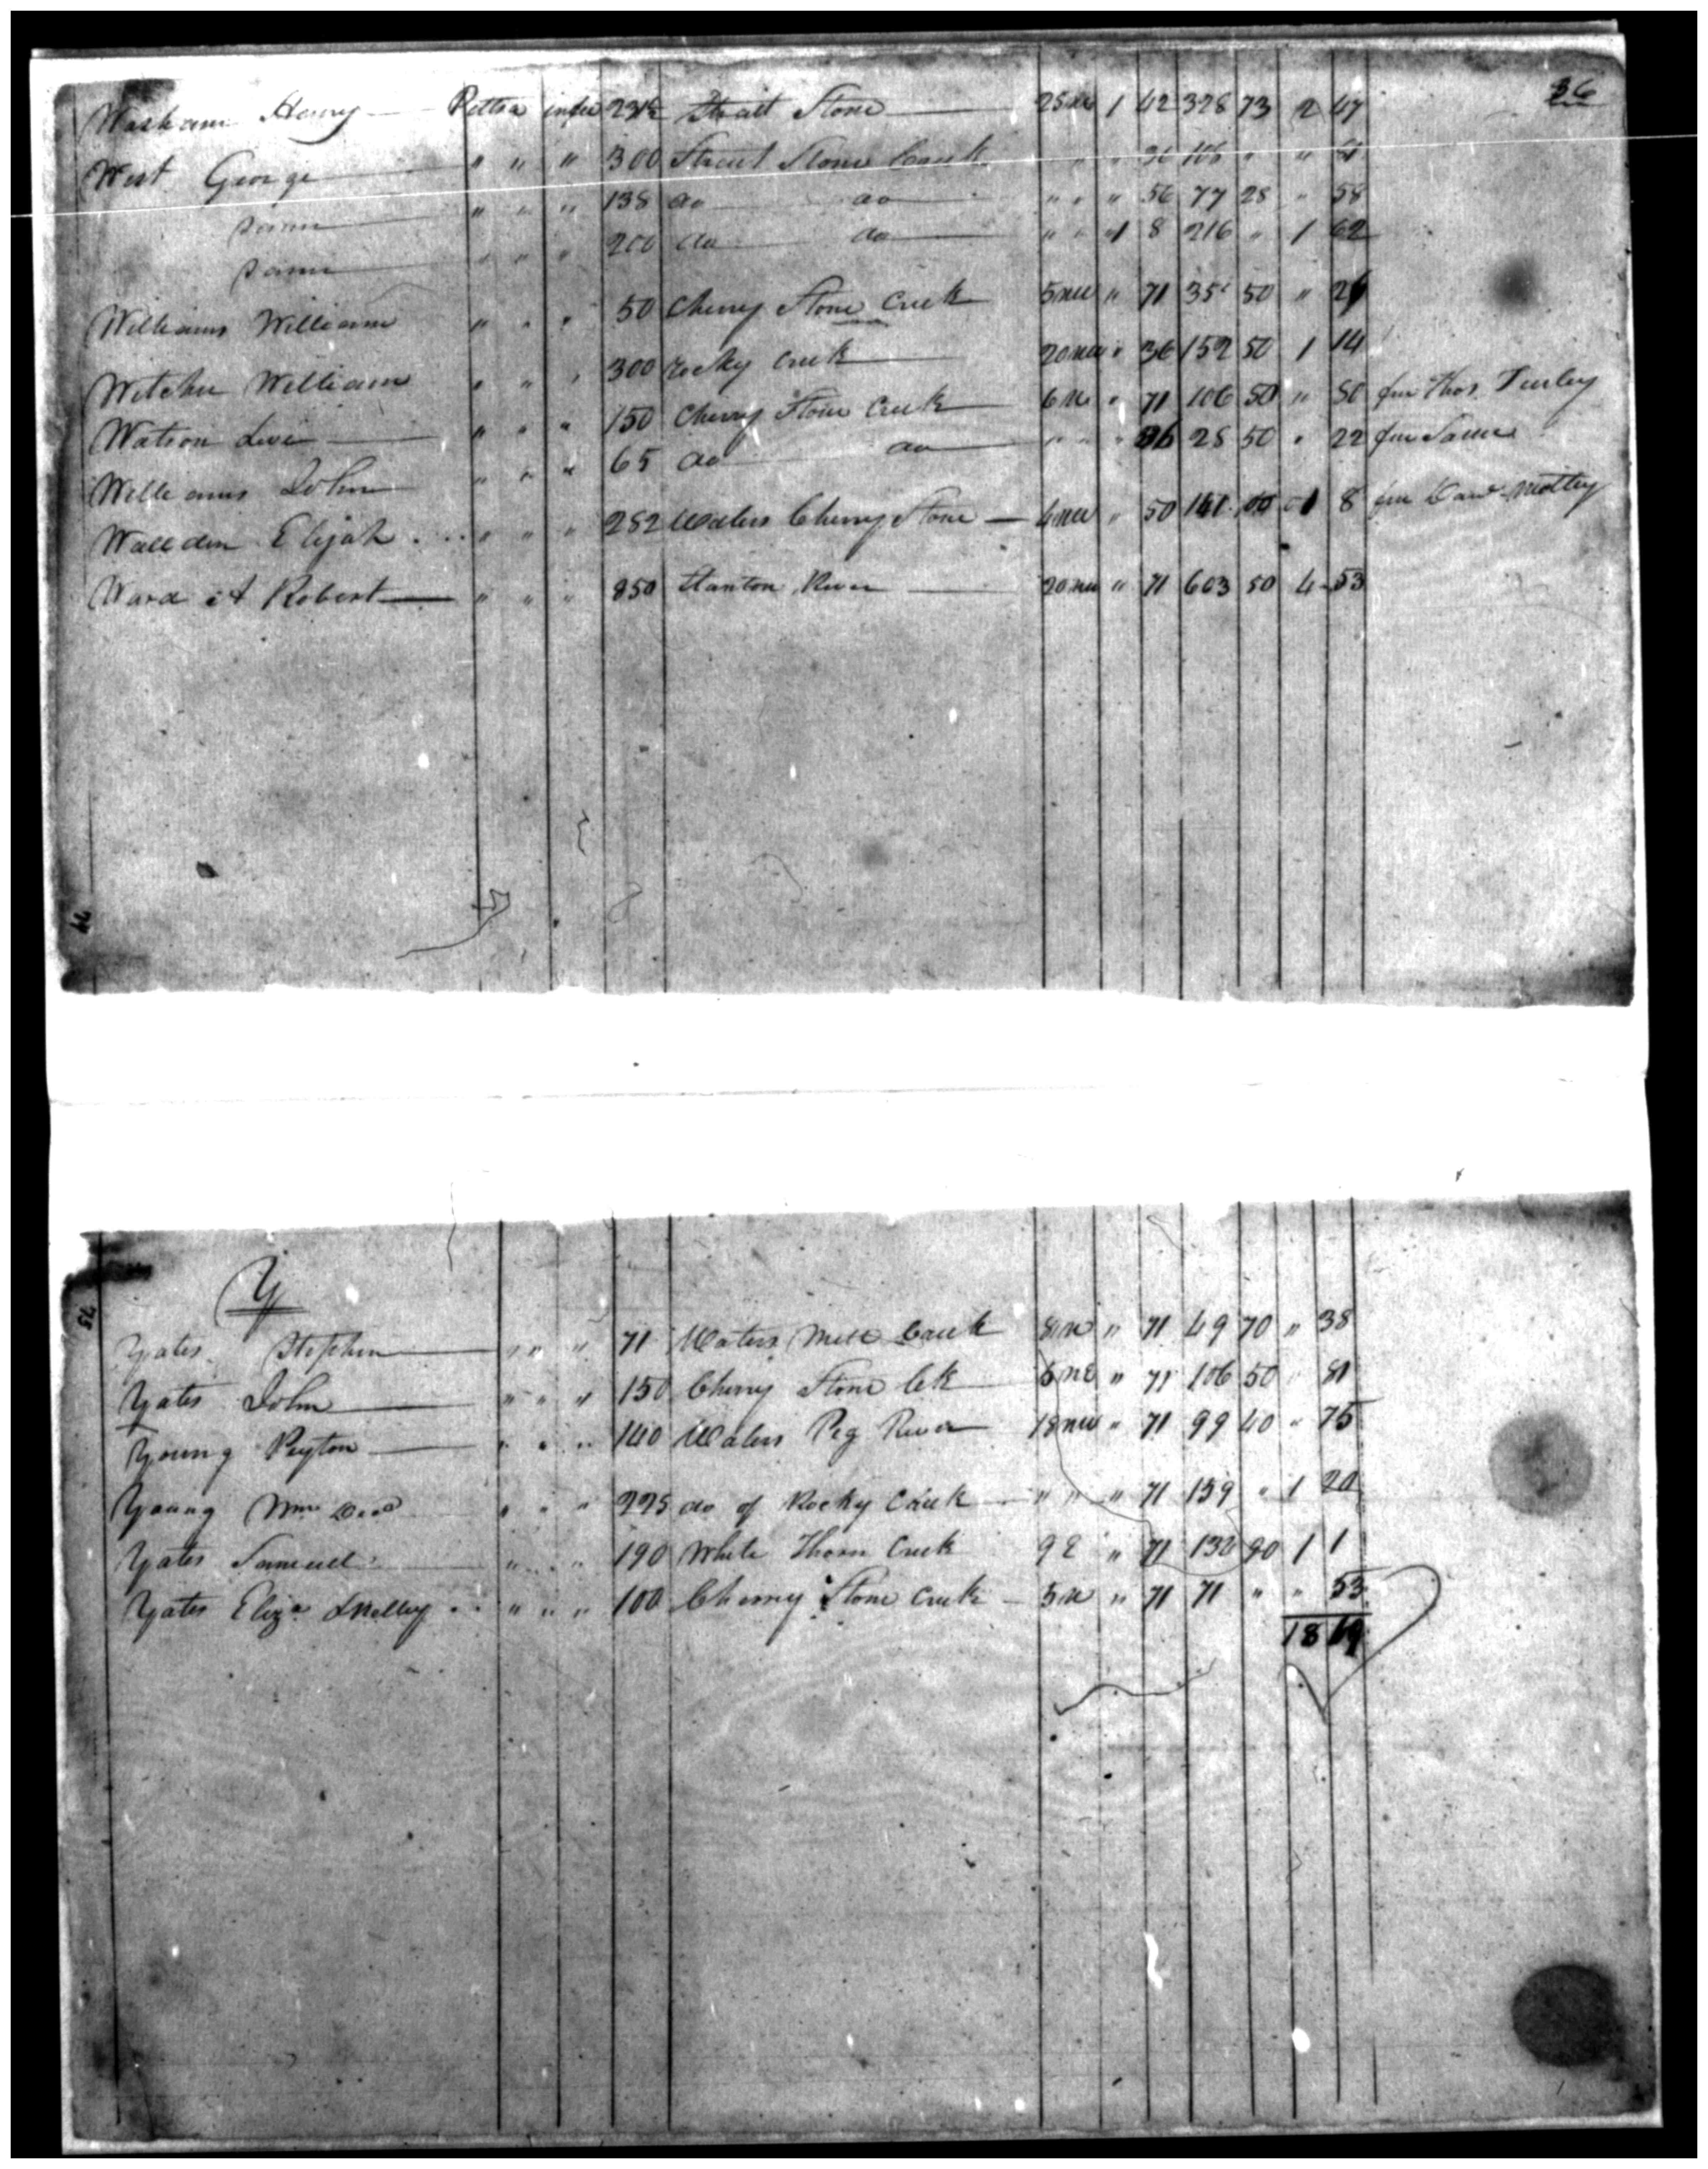 36
Henry Pittsa infee 231½ Strait Stone 25 1 42 328 73 2 47
West George " " " 300 Strait Stone Creek " " 36 108 " " 81
same " " " 138 do do " " " 56 77 28 " 58
same " " " 200 do do " " 1 8 216 " 1 62
Williams William " " " 50 Cherry Stone Creek 5 " 71 35 50 "
Witcher William " " " 300 rocky Creek 20 " 36 152 50 1 14
Watson Levi " " " 150 Cherry Stone Creek 6 " 71 106 50 " 80 fm Thos
Williams John " " " 65 do do " " " 28 50 " 22 fm Same
Wallden Elijah " " " 282 Waters Cherry Stone 4 " 50 1 8 fm Motley
Ward A Robert " " " 850 Stanton River 20 " 71 603 50 4 53
44
Y
Yates Stephen " " " 71 Waters Mill Creek 8 " 71 49 70 " 38
Yates John " " " 150 Cherry Stone Ck 6 " 71 106 50 " 81
Young Peyton " " " 140 Waters Pig River 18 " 71 99 40 " 75
Young Wm " " " 225 do of Rocky Creek " " " 71 159 " 1 20
Yates Samuel " " " 190 White Thorn Creek 9 E " 71 90 1 1
Yates Eliza " " " 100 Cherry Stone Creek 5 " 71 71 " " 53
18